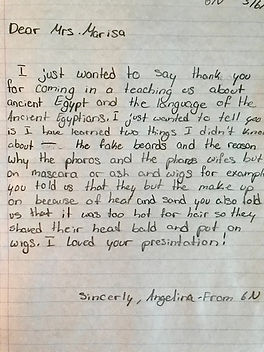 6N 3/6/
Dear Mrs. Marisa
I just wanted to say thank you
for coming in a teaching us about
ancient Egypt and the language of the
Ancient Egyptians. I just wanted to tell you
is I have learned two things I didn't know
about the fake beards and the reason
why the pharos and the pharos wifes but
on mascara or ash and wigs for example
you told us that they but the make up
on because of heat and sand you also told
us that it was too hot for hair so they
shaved their head bald and put on
wigs. I loved your presintation!
Sincerly, Angelina-From 6N